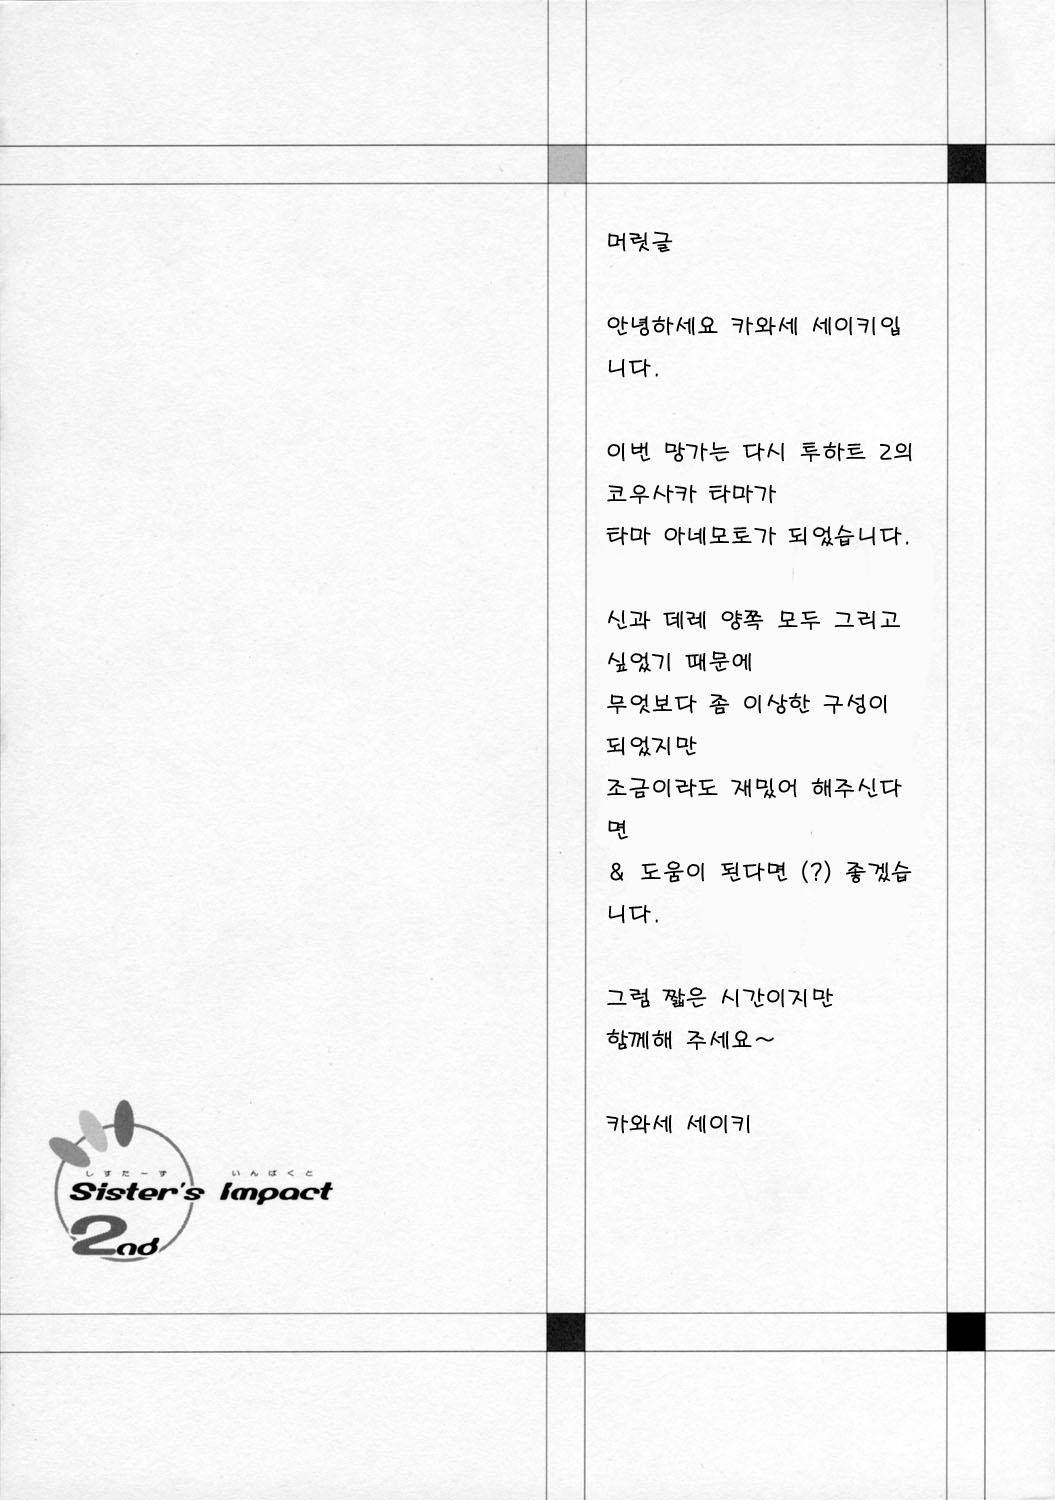 머릿글
안녕하세요 카와세 세이키입
니다.
이번 망가는 다시 투하트 2의
코우사카 타마가
타마 아네모토가 되었습니다.
신과 데레 양쪽 모두 그리고
싶었기 때문에
무엇보다 좀 이상한 구성이
되었지만
조금이라도 재밌어 해주신다
면
& 도움이 된다면 (?) 좋겠습
니다.
그럼 짧은 시간이지만
함께해 주세요~
카와세 세이키
しすたーず いんぱくと
Sister's Impact
2nd